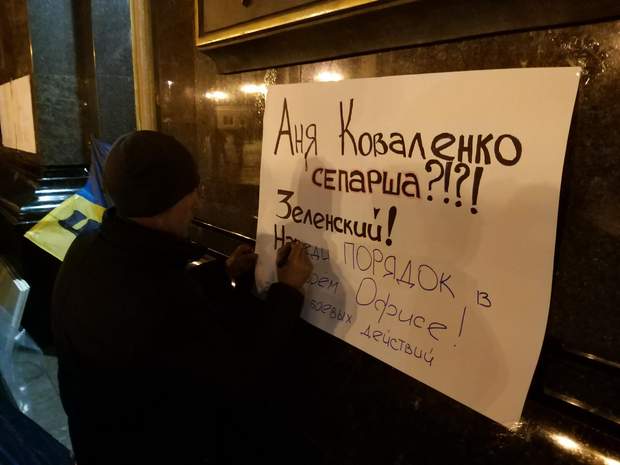 Аня Коваленко
СЕПАРША?!?!
Зеленский!
ПОРЯДОК в
Офисе!
боевых действий